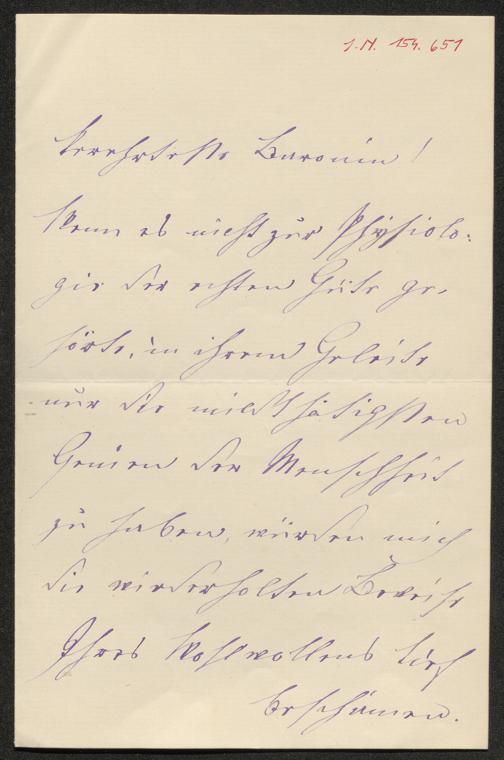 I.N. 154.651
Verehrteste Baronin!
Wenn es nicht zur Physiolo-
gie der echten Güte ge-
hörte, in ihrem Geleite
nur die mildthätigsten
Genien der Menschheit
zu haben, würden mich
die wiederholten Beweise
Ihres Wohlwollens tief
beschämen.